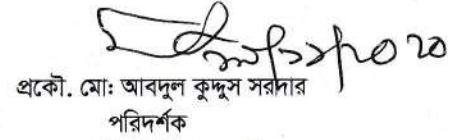 প্রকৌ. মোঃ আবদুল কুদ্দুস সরদার
পরিদর্শক